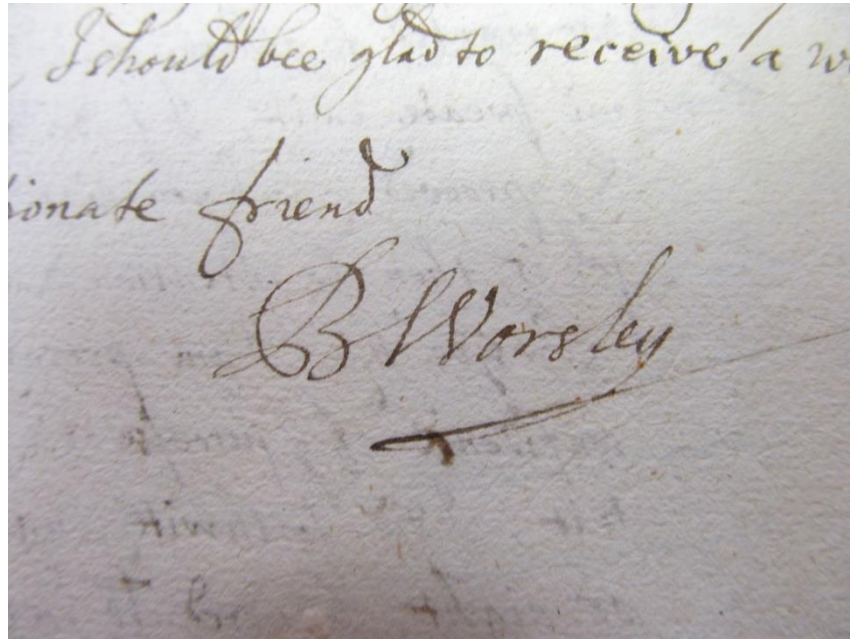 I should bee glad to receive a
ionate friend
B Worsley